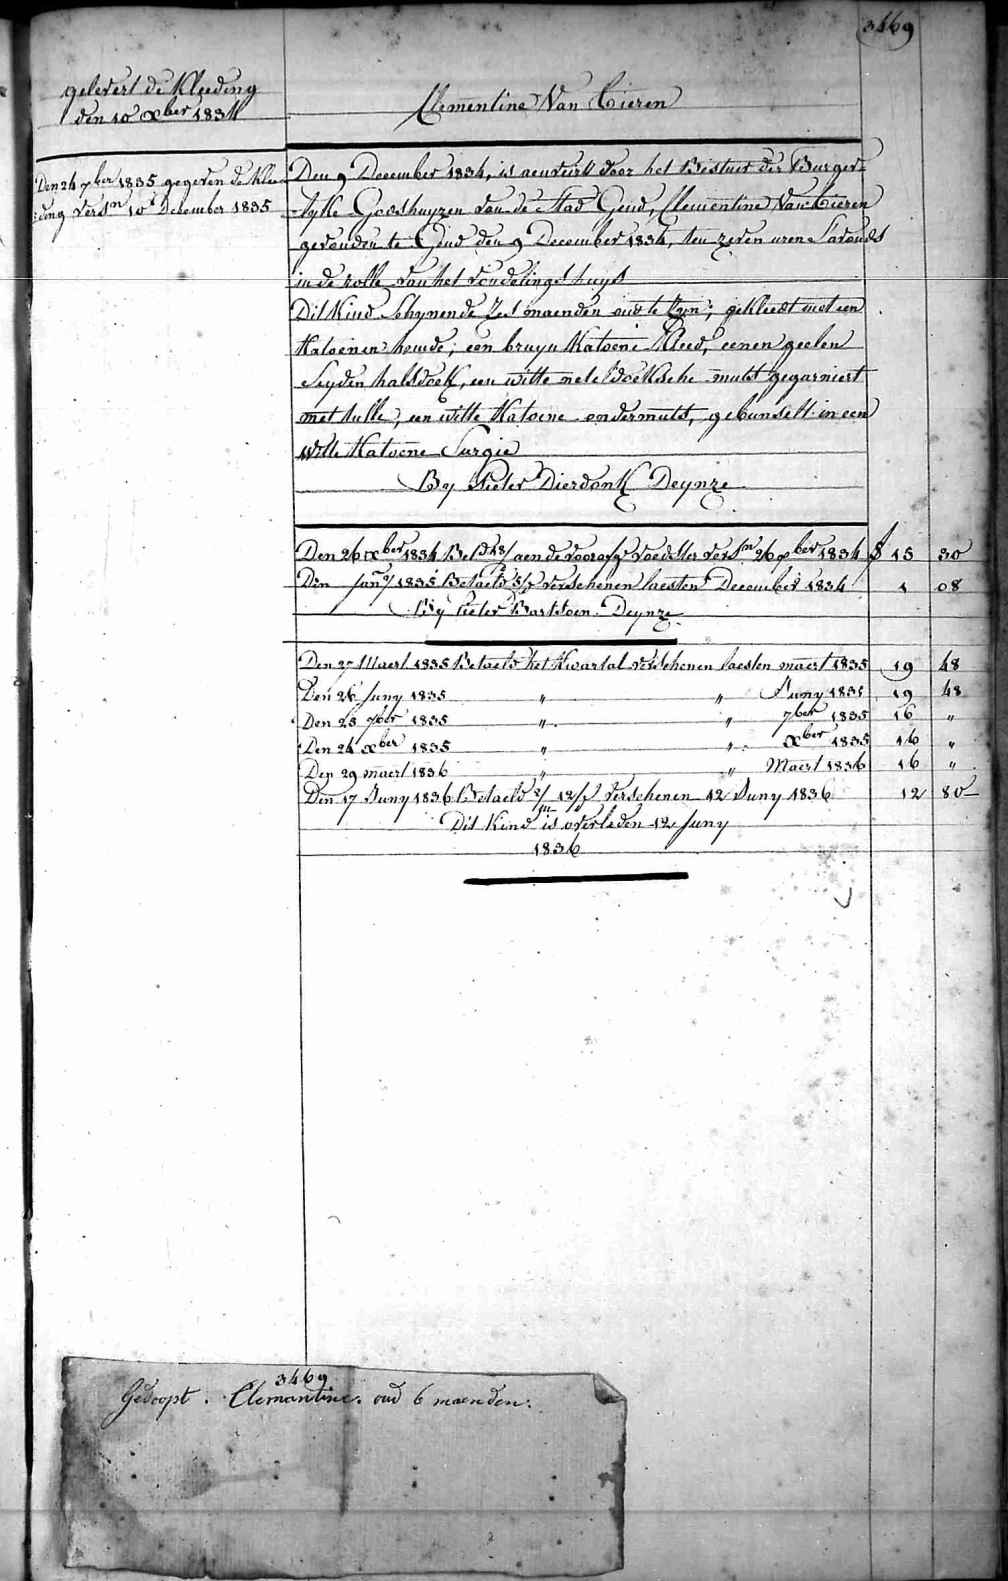 3469
gelevert de Kleeding
den 10 Xber 1834
Clementine Van Cieren
Den 24 7ber 1835 gegeven de Klee=
=ding versn 10 December 1835
Den 9 December 1834, is aenveirt door het Bestuer der Burger=
=lyke Godshuyzen van de Stad Gend, Clementine Van Cieren
gevonden te Gend den 9 December 1834, ten zeven uren Savonds
in de rolle van het vondelingshuys
Dit Kind Schynende Zes maenden oud te Zyn; gekleedt met een
Katoenen hemde; een bruyn Katoene Kleed, eenen geelen
Seyden halsdoek, een witte neteldoeksche muts gegarniert
met tulle, een witte Katoene ondermuts, gebunselt in een
Witte Katoene Surgie
By Pieter Dierdonk Deynze
Den 26 Xber 1834 aen de voedster versn 26 Xber 1834 15 30
Den 1835 Betaeld verschenen laesten December 1834 1 08
By Pieter Bartstoen Deynze
Den 27 Maert 1835 Betaeld het Kwartal verschenen laesten maert 1835 19 48
Den 26 Juny 1835 " " Juny 1835 19 48
Den 25 7ber 1835 " " 7ber 1835 16 "
Den 24 Xber 1835 " " Xber 1835 16 "
Den 29 maert 1836 " " Maert 1836 16 "
Den 17 Juny 1836 Betaeld 2/m 12/d verschenen 12 Juny 1836 12 80
Dit Kind is overleden 12 Juny
1836
3469
Gedoopt. Clemantine. oud 6 maenden.